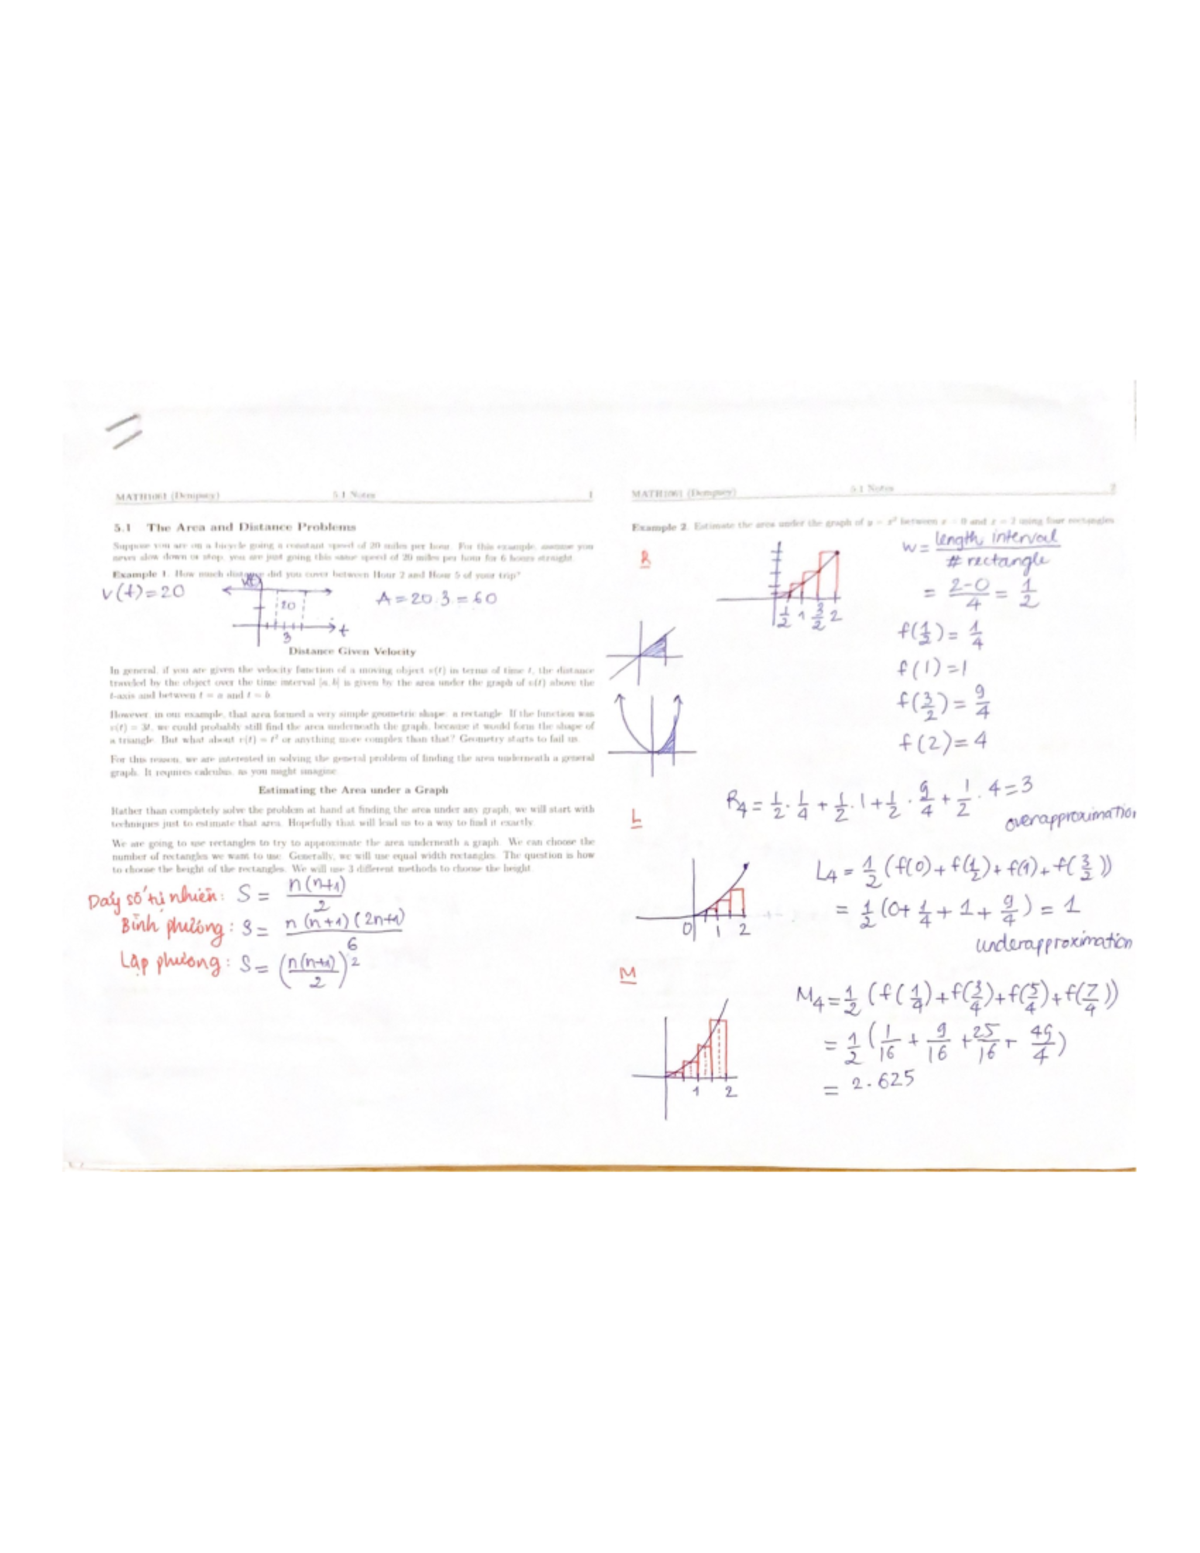 MATH1061 (Dempsey) 5.1 Notes 1
5.1 The Area and Distance Problems
Suppose you are on a bicycle going a constant speed of 20 miles per hour. For this example, assume you
never slow down or stop, you are just going this same speed of 20 miles per hour for 6 hours straight.
Example 1. How much distance did you cover between Hour 2 and Hour 5 of your trip?
v(t)=20
20
3
t
A=20.3.=60
Distance Given Velocity
In general, if you are given the velocity function of a moving object v(t) in terms of time t, the distance
traveled by the object over the time interval [a, b] is given by the area under the graph of v(t) above the
t-axis and between t = a and t = b.
However, in our example, that area formed a very simple geometric shape: a rectangle. If the function was
v(t) = 3t, we could probably still find the area underneath the graph, because it would form the shape of
a triangle. But what about v(t) = t² or anything more complex than that? Geometry starts to fail us.
For this reason, we are interested in solving the general problem of finding the area underneath a general
graph. It requires calculus, as you might imagine.
Estimating the Area under a Graph
Rather than completely solve the problem at hand at finding the area under any graph, we will start with
techniques just to estimate that area. Hopefully that will lead us to a way to find it exactly.
We are going to use rectangles to try to approximate the area underneath a graph. We can choose the
number of rectangles we want to use. Generally, we will use equal width rectangles. The question is how
to choose the height of the rectangles. We will use 3 different methods to choose the height.
Dãy số tự nhiên: S = n(n+1)/2
Bình phương: S = n(n+1)(2n+1)/6
Lập phương: S = (n(n+1)/2)²
MATH1061 (Dempsey) 5.1 Notes 2
Example 2. Estimate the area under the graph of y = x² between x = 0 and x = 2 using four rectangles.
R
1/2 1 3/2 2
w = length interval / # rectangle
= 2-0/4 = 1/2
f(1/2) = 1/4
f(1) = 1
f(3/2) = 9/4
f(2) = 4
R4 = 1/2 . 1/4 + 1/2 . 1 + 1/2 . 9/4 + 1/2 . 4 = 3
overapproximation
L
0 1 2
L4 = 1/2 (f(0)+f(1/2)+f(1)+f(3/2))
= 1/2 (0+ 1/4 + 1 + 9/4) = 1
underapproximation
M
1 2
M4 = 1/2 (f(1/4)+f(3/4)+f(5/4)+f(7/4))
= 1/2 (1/16 + 9/16 + 25/16 + 49/4)
= 2.625